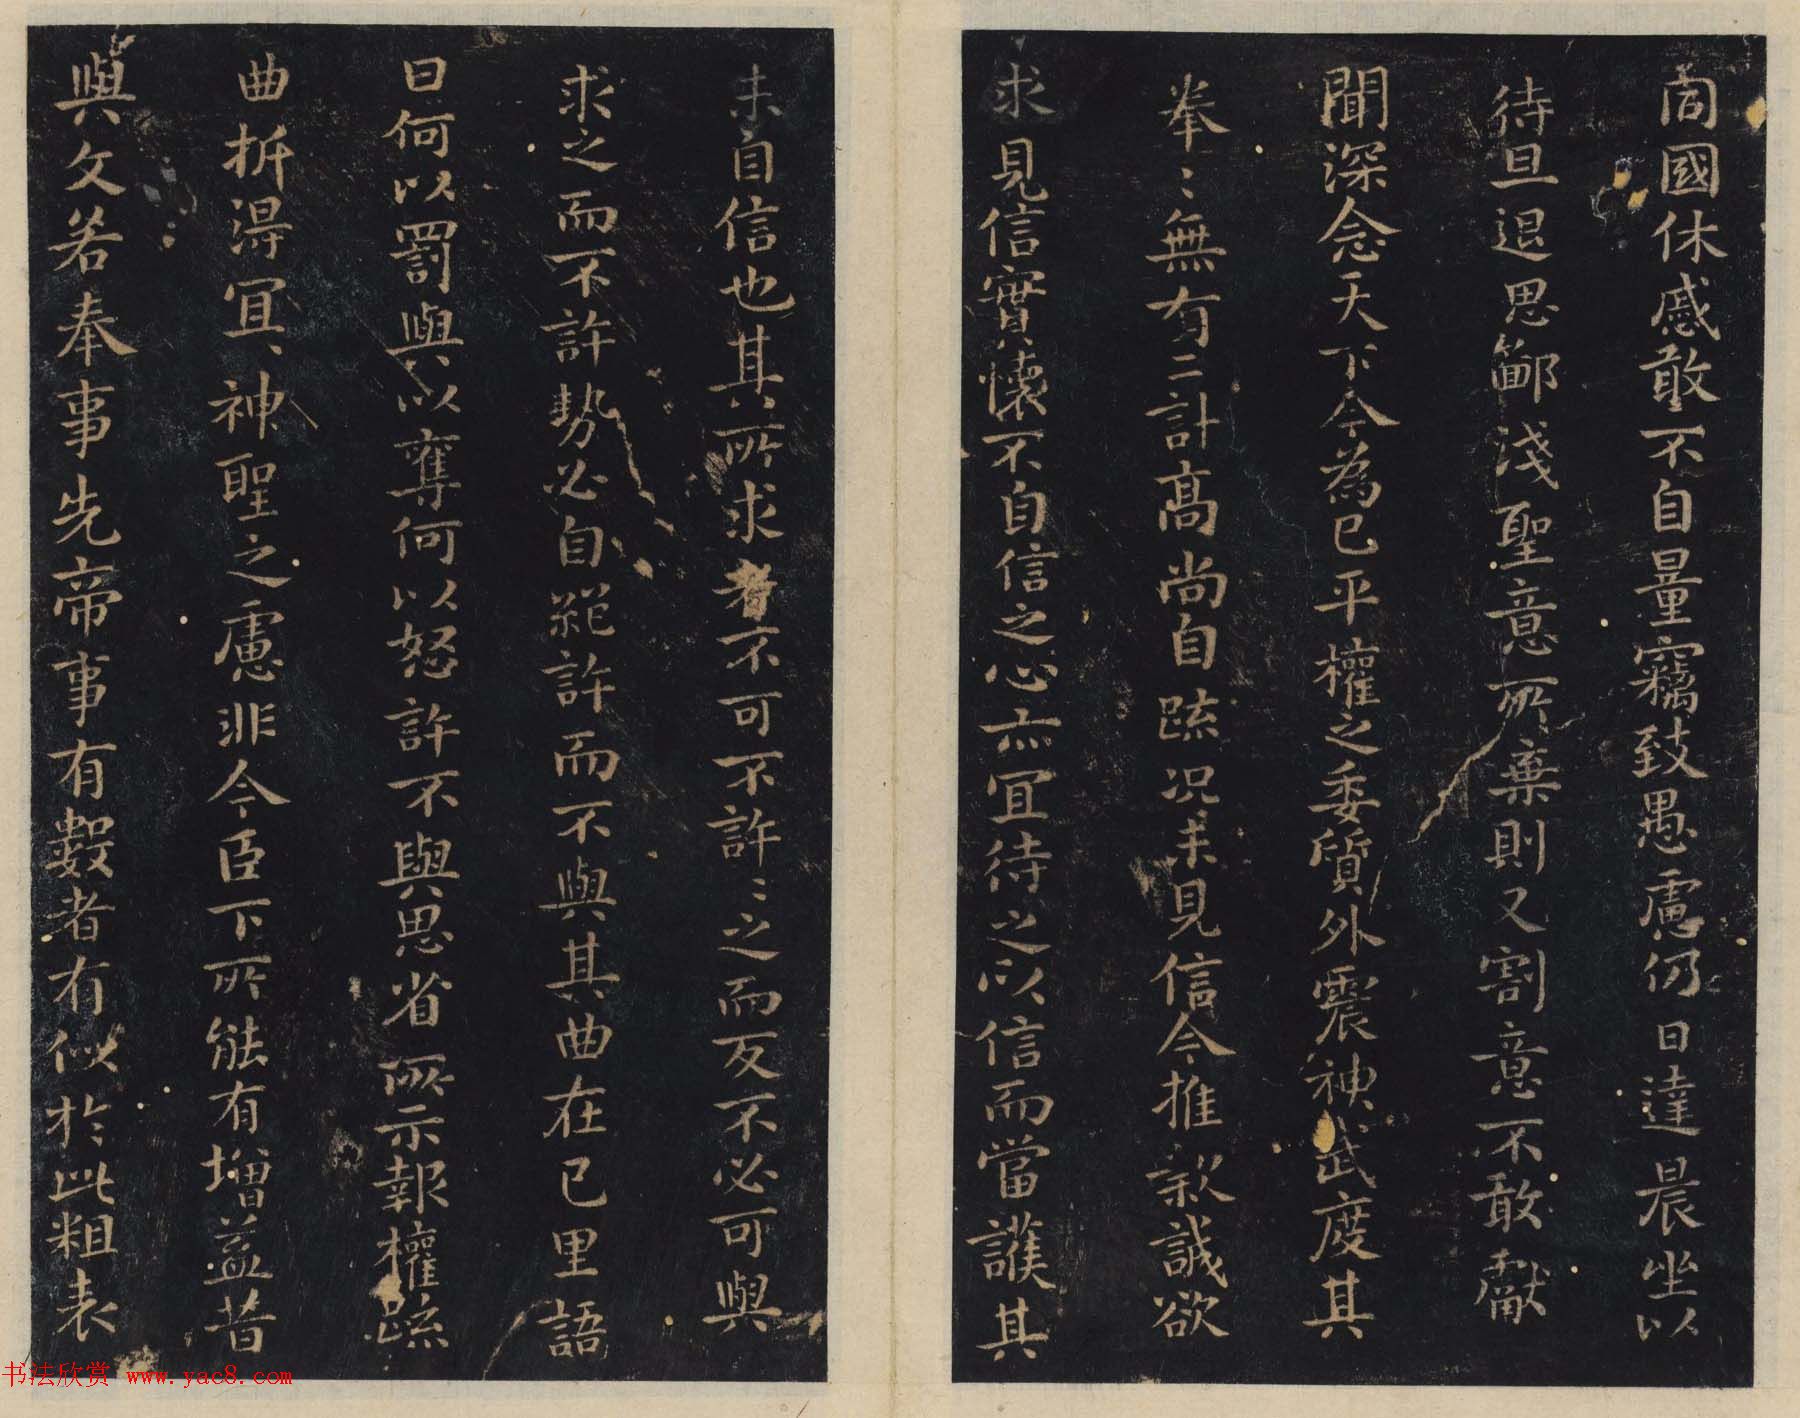 同國休慼敢不自量竊致愚慮仍日達晨坐以
待旦退思鄙淺聖意所棄則又割意不敢獻
聞深念天下今為已平權之委質外震神武度其
拳〻無有二計高尚自疏况未見信今推款誠欲
求見信實懷不自信之心亦宜待之以信而當護其
未自信也其所求者不可不許〻之而反不必可與
求之而不許勢必自絕許而不與其曲在己里語
曰何以罰與以奪何以怒許不與思省所示報權疏
曲折得宜神聖之慮非今臣下所能有增益昔
與文若奉事先帝事有數者有似於此粗表
书法欣赏 www.yac8.com